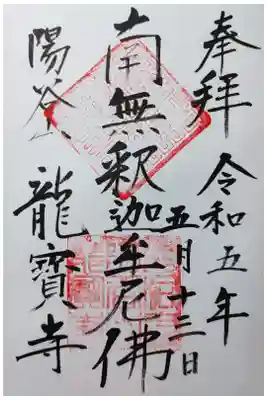 奉拝
令和五年
五月十三日
南無釈迦牟尼佛
陽谷山
龍寶寺